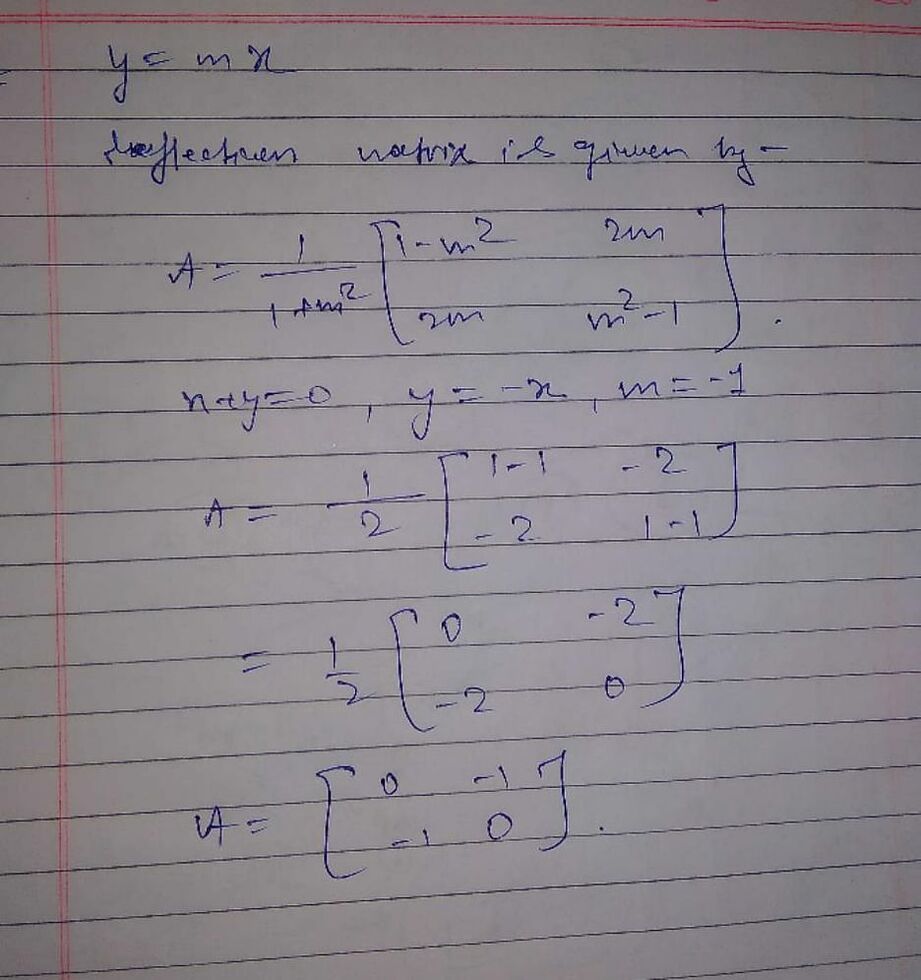 y = mx
Reflection matrix is given by -
A = 1/(1+m²) [1-m² 2m; 2m m²-1].
x+y=0, y = -x, m = -1
A = 1/2 [1-1 -2; -2 1-1]
= 1/2 [0 -2; -2 0]
A = [0 -1; -1 0].